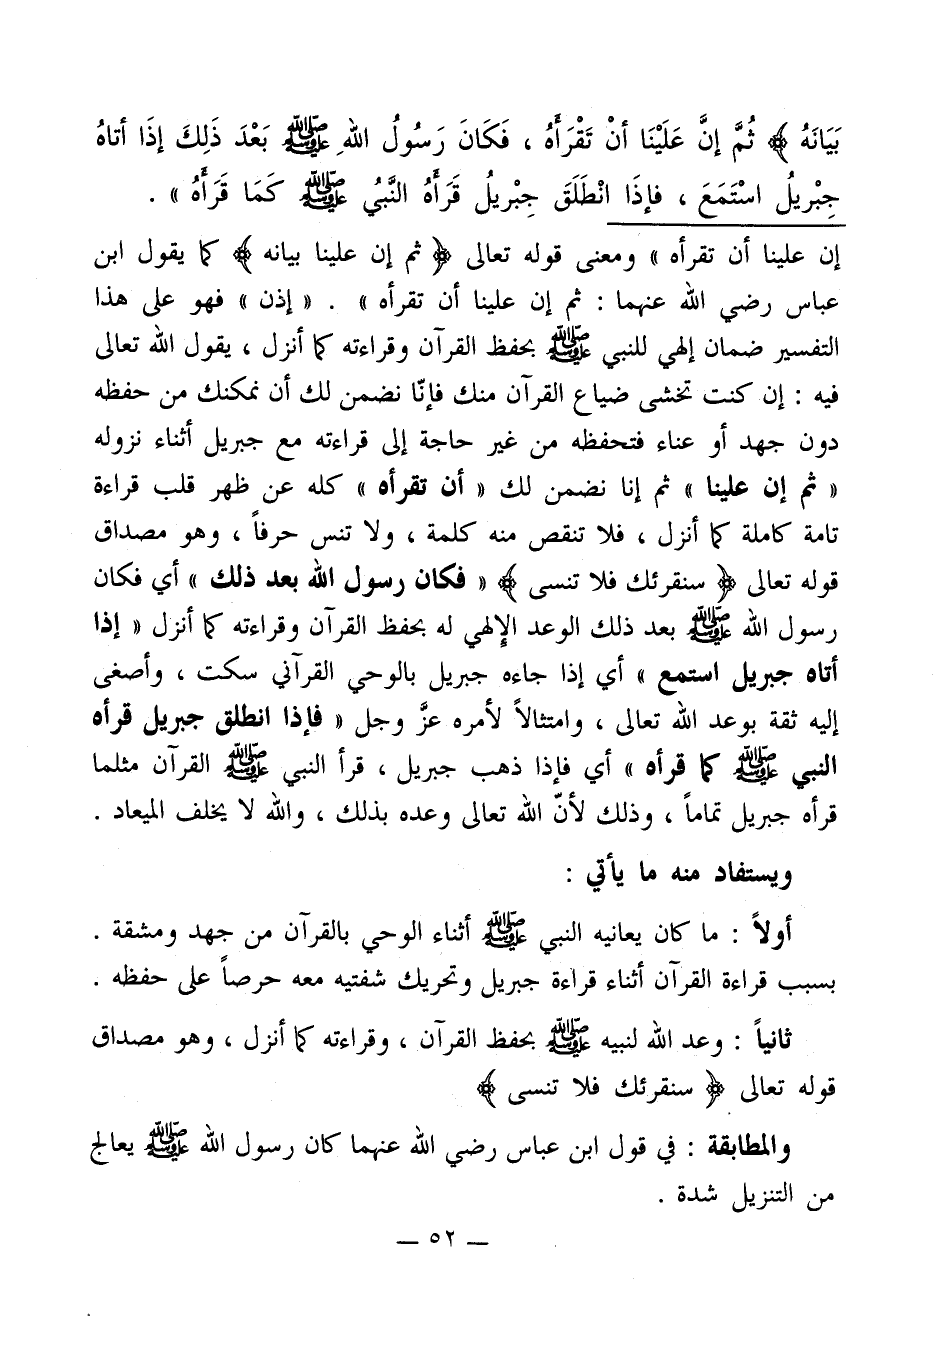 بَيَانَهُ ﴾ ثُمَّ إنَّ عَلَيْنَا أنْ تَقْرَأَهُ ، فَكَانَ رَسُولُ اللهِ ﷺ بَعْدَ ذَلِكَ إذَا أتاهُ
جِبْريلُ اسْتَمَعَ ، فإذَا انْطَلَقَ جِبْرِيلُ قَرَأَهُ النَّبُي ﷺ كَمَا قَرَأَهُ » .
إن علينا أن تقرأه » ومعنى قوله تعالى ﴿ ثم إن علينا بيانه ﴾ كما يقول ابن
عباس رضي الله عنهما : ثم إن علينا أن تقرأه » . « إذن » فهو على هذا
التفسير ضمان إلهي للنبي ﷺ بحفظ القرآن وقراءته كما أنزل ، يقول الله تعالى
فيه : إن كنت تخشى ضياع القرآن منك فإنّا نضمن لك أن نمكنك من حفظه
دون جهد أو عناء فتحفظه من غير حاجة إلى قراءته مع جبريل أثناء نزوله
« ثم إن علينا » ثم إنا نضمن لك « أن تقرأه » كله عن ظهر قلب قراءة
تامة كاملة كما أنزل ، فلا تنقص منه كلمة ، ولا تنس حرفاً ، وهو مصداق
قوله تعالى ﴿ سنقرئك فلا تنسى ﴾ « فكان رسول الله بعد ذلك » أي فكان
رسول الله ﷺ بعد ذلك الوعد الإلهي له بحفظ القرآن وقراءته كما أنزل « إذا
أتاه جبريل استمع » أي إذا جاءه جبريل بالوحي القرآني سكت ، وأصغى
إليه ثقة بوعد الله تعالى ، وامتثالاً لأمره عزَّ وجل « فإذا انطلق جبريل قرأه
النبي ﷺ كما قرأه » أي فإذا ذهب جبريل ، قرأ النبي ﷺ القرآن مثلما
قرأه جبريل تماماً ، وذلك لأنّ الله تعالى وعده بذلك ، والله لا يخلف الميعاد .
ويستفاد منه ما يأتي :
أولاً : ما كان يعانيه النبي ﷺ أثناء الوحي بالقرآن من جهد ومشقة .
بسبب قراءة القرآن أثناء قراءة جبريل وتحريك شفتيه معه حرصاً على حفظه .
ثانياً : وعد الله لنبيه ﷺ بحفظ القرآن ، وقراءته كما أنزل ، وهو مصداق
قوله تعالى ﴿ سنقرئك فلا تنسى ﴾
والمطابقة : في قول ابن عباس رضي الله عنهما كان رسول الله ﷺ يعالج
من التنزيل شدة .
— ٥٢ —